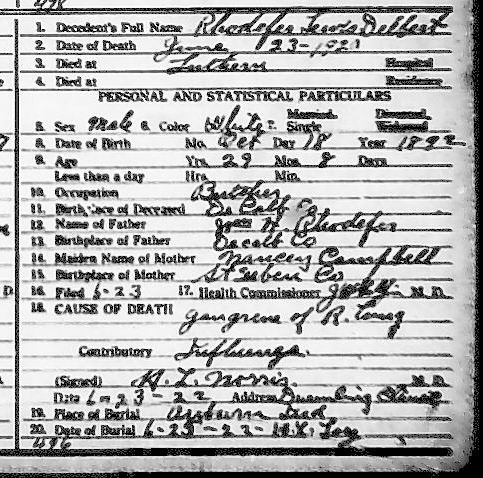 496
1. Decedent's Full Name Rhodefer Lewis Delbert
2. Date of Death June 23-192
3. Died at Luthern Hospital
4. Died at Residence
PERSONAL AND STATISTICAL PARTICULARS
5. Sex Male 6. Color White 7. Married Single Divorced Widowed
8. Date of Birth Mo. Oct Day 18 Year 1892
9. Age Yrs. 29 Mos. 8 Days
Less than a day Hrs. Min.
10. Occupation Butcher
11. Birthplace of Deceased De Calb Co.
12. Name of Father H. Rhodefer
13. Birthplace of Father Decalb Co
14. Maiden Name of Mother Nancy Campbell
15. Birthplace of Mother Steuben Co
16. Filed 6-23 17. Health Commissioner M. D.
18. CAUSE OF DEATH Gangrene of R. Lung
Contributory Influenza.
(Signed) H. L. Norris. M. D.
Date 6-23-22 Address
19. Place of Burial Auburn Ind
20. Date of Burial 6-23-22-
496